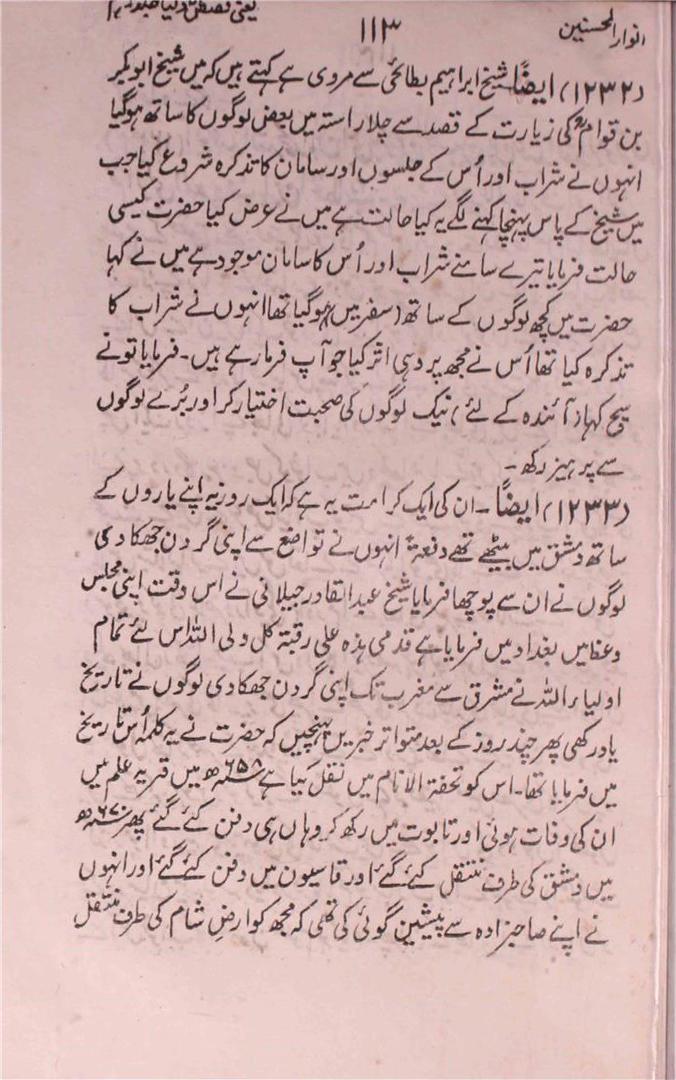 انوار المحسنین
۱۱۳
یعنی قصص
(۱۲۳۲) ایضًا شیخ ابراہیم بطائحی سے مروی ہے کہتے ہیں کہ میں شیخ ابو بکر
بن قوامؒ کی زیارت کے قصد سے چلا راستہ میں بعض لوگوں کا ساتھ ہوگیا
انہوں نے شراب اور اُس کے جلسوں اور سامان کا تذکرہ شروع کیا جب
میں شیخ کے پاس پہنچا کہنے لگے یہ کیا حالت ہے میں نے عرض کیا حضرت کیسی
حالت فرمایا تیرے سامنے شراب اور اُس کا سامان موجود ہے میں نے کہا
حضرت میں کچھ لوگوں کے ساتھ (سفر میں) ہوگیا تھا انہوں نے شراب کا
تذکرہ کیا تھا اُس نے مجھ پر وہی اثر کیا جو آپ فرما رہے ہیں۔ فرمایا تو نے
سچ کہا (آئندہ کے لئے) نیک لوگوں کی صحبت اختیار کر اور بُرے لوگوں
سے پرہیز رکھ۔
(۱۲۳۳) ایضًا۔ ان کی ایک کرامت یہ ہے کہ ایک روز یہ اپنے یاروں کے
ساتھ دمشق میں بیٹھے تھے دفعۃً انہوں نے تواضع سے اپنی گردن جھکا دی
لوگوں نے ان سے پوچھا فرمایا شیخ عبد القادر جیلانی نے اس وقت اپنی مجلس
وعظ میں بغداد میں فرمایا ہے قدمی ہذہ علی رقبۃ کل ولی اللہ اس لئے تمام
اولیاء اللہ نے مشرق سے مغرب تک اپنی گردن جھکا دی لوگوں نے تاریخ
یاد رکھی پھر چند روز کے بعد متواتر خبریں پہنچیں کہ حضرت نے یہ کلمہ اُس تاریخ
میں فرمایا تھا۔ اس کو تحفۃ الانام میں نقل کیا ہے ۶۵۸ھ میں قریہ علم میں
ان کی وفات ہوئی اور تابوت میں رکھ کر وہاں ہی دفن کئے گئے پھر ۶۷۰ھ
میں دمشق کی طرف منتقل کئے گئے اور قاسیون میں دفن کئے گئے اور انہوں
نے اپنے صاحبزادہ سے پیشین گوئی کی تھی کہ مجھ کو ارضِ شام کی طرف منتقل